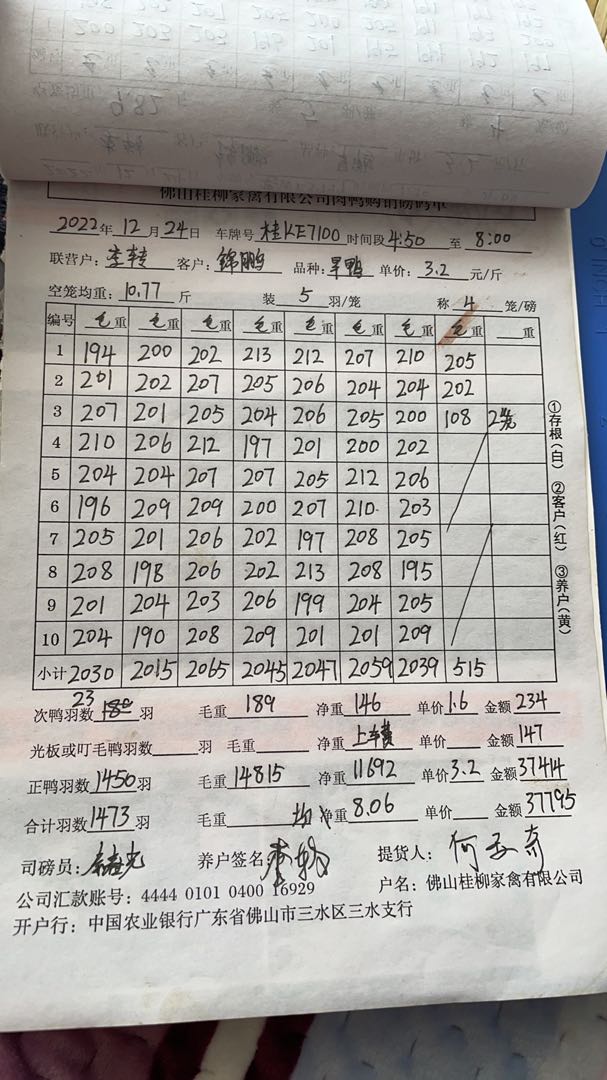 佛山桂柳家禽有限公司肉鸭购销磅码单
2022年 12月 24日 车牌号 桂KE7100 时间段 4:50 至 8:00
联营户: 李转 客户: 锦鹏 品种: 旱鸭 单价: 3.2 元/斤
空笼均重: 10.77 斤 装 5 羽/笼 称 4 笼/磅
编号 毛重 毛重 毛重 毛重 毛重 毛重 毛重 毛重 重
1 194 200 202 213 212 207 210 205
2 201 202 207 205 206 204 204 202
3 207 201 205 204 206 205 200 108 2笼
4 210 206 212 197 201 200 202
5 204 204 207 207 205 212 206
6 196 209 209 200 207 210 203
7 205 201 206 202 197 208 205
8 208 198 206 202 213 208 195
9 201 204 203 206 199 204 205
10 204 190 208 209 201 201 209
小计 2030 2015 2065 2045 2047 2059 2039 515
次鸭羽数 23 羽 毛重 189 净重 146 单价 1.6 金额 234
光板或叮毛鸭羽数 羽 毛重 净重 上车费 单价 金额 147
正鸭羽数 1450 羽 毛重 14815 净重 11692 单价 3.2 金额 37414
合计羽数 1473 羽 毛重 净重 8.06 单价 金额 37795
司磅员: 养户签名: 提货人:
公司汇款账号: 4444 0101 0400 16929 户名: 佛山桂柳家禽有限公司
开户行: 中国农业银行广东省佛山市三水区三水支行
①存根(白) ②客户(红) ③养户(黄)